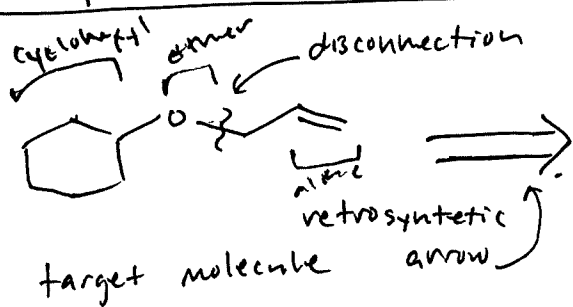 cyclohexyl
ether
disconnection
O
alkene
retrosynthetic
arrow
target molecule